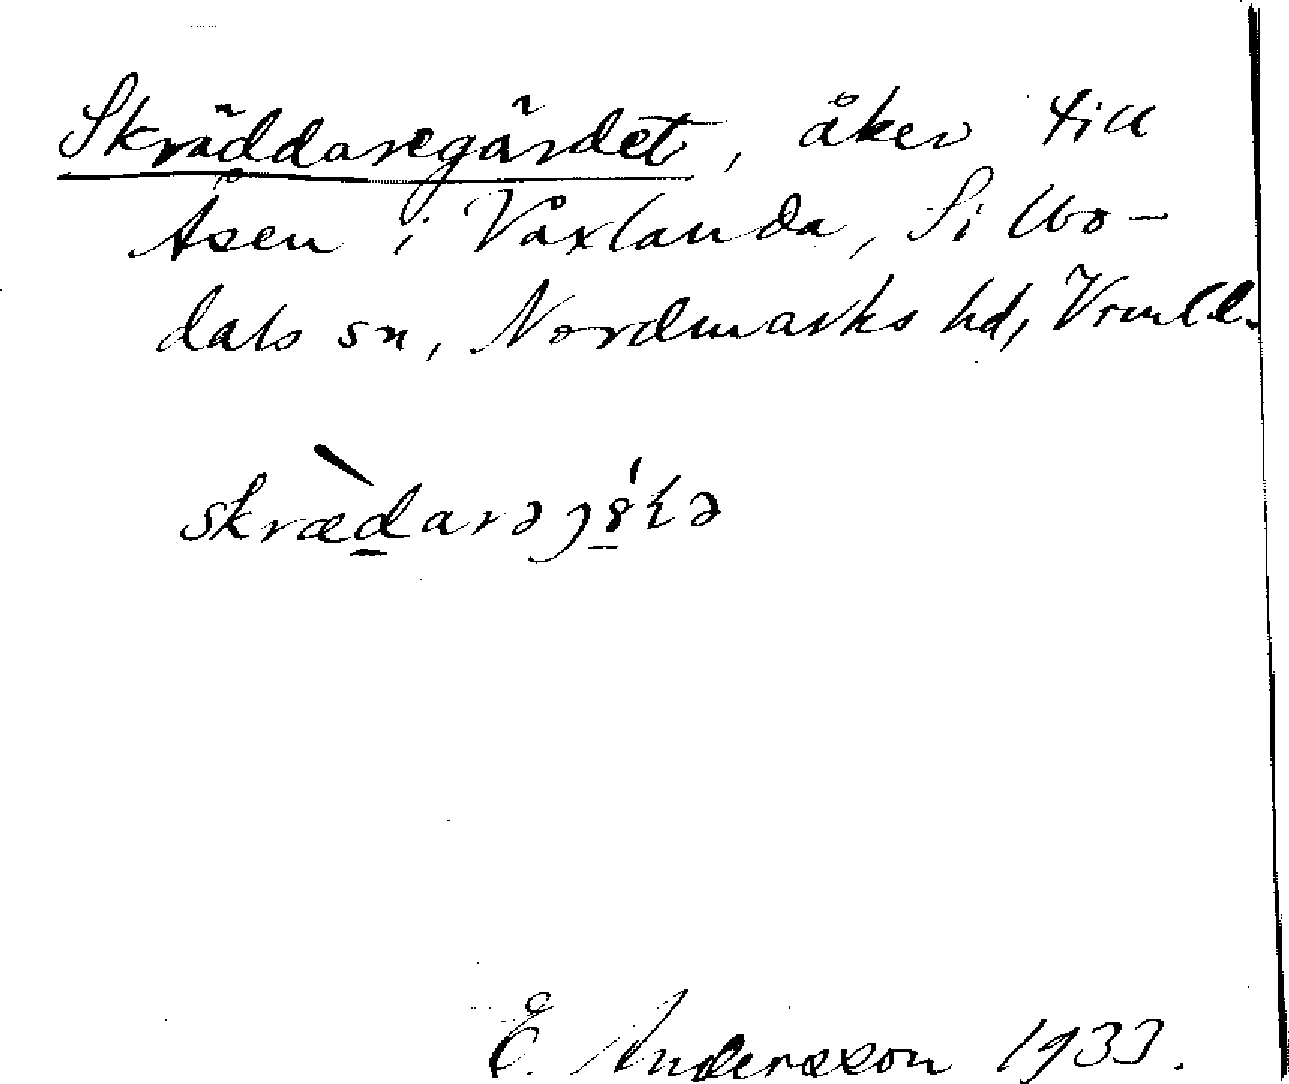 Skräddaregärdet, åker till
Åsen i Våxlanda, Silbo-
dals sn, Nordmarks hd, Vrmld.
E. Andersson 1933.